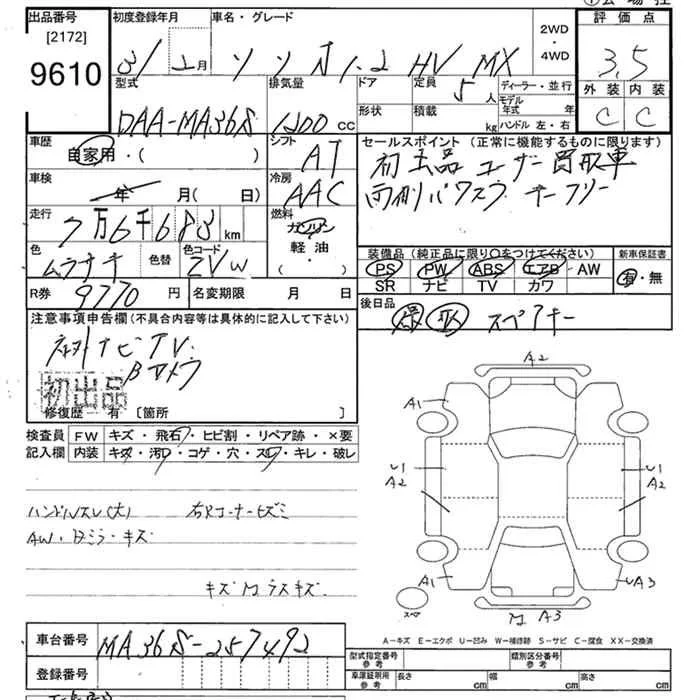 出品番号
[2172]
9610
初度登録年月
3/ 月
車名・グレード
ソリオ 1.2 HV MX
2WD
・
4WD
評価点
3.5
外装 内装
C C
型式
DAA-MA36S
排気量
1200 CC
ドア
形状
定員
5 人
積載
kg
ディーラー・並行
モデル年式 年
ハンドル 左・右
車歴
自家用・( )
シフト
AT
車検
年 月( 日)
冷房
AAC
走行
7万6千683 km
燃料
ガソリン
軽・油
・( )
色
ムラサキ
色替
色コード
ZVW
R券
9770 円
名変期限 月 日
セールスポイント (正常に機能するものに限ります)
初出品 ユーザー買取車
両側パワスラ キーフリー
装備品 (純正品に限り○をつけてください)
PS PW ABS エアB AW
SR ナビ TV カワ
新車保証書
有・無
後日品
保 取 スペアキー
注意事項申告欄(不具合内容等は具体的に記入して下さい)
社外ナビTV
Bカメラ
初出品
修復歴 有 [箇所 ]
検査員記入欄
FW キズ・飛石・ヒビ割・リペア跡・×要
内装 キズ・汚レ・コゲ・穴・スレ・キレ・破レ
ハンドルスレ(大) 右Rコーナーヒズミ
AW・Dミラーキズ
キズ
A2
A1
U1
A2
U1
A2
A1
UA3
A3
スペア
A-キズ E-エクボ U-凹み W-補修跡 S-サビ C-腐食 XX-交換済
車台番号
MA36S-257492
登録番号
型式指定番号
参考
類別区分番号
参考
車庫証明用
参考
長さ cm
幅 cm
高さ cm